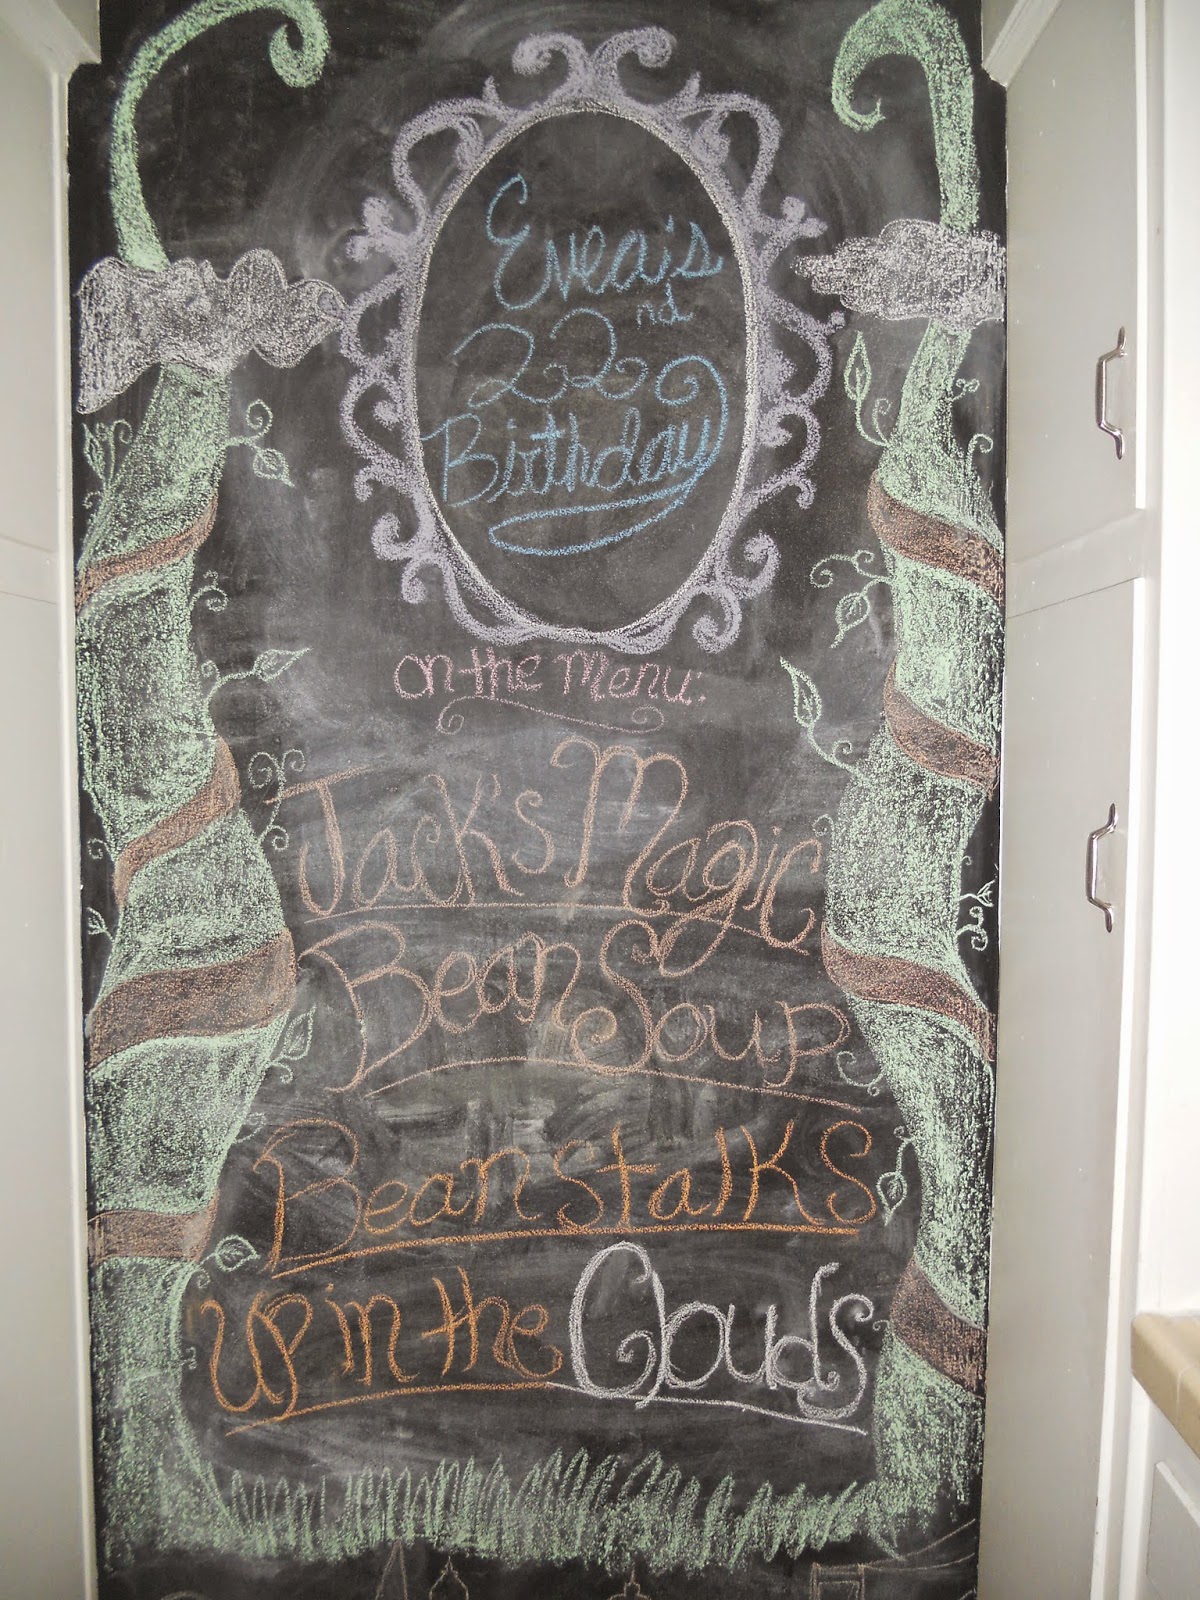 Evea's
22nd
Birthday
on the Menu:
Jack's Magic
Bean Soup
Beanstalks
up in the Clouds